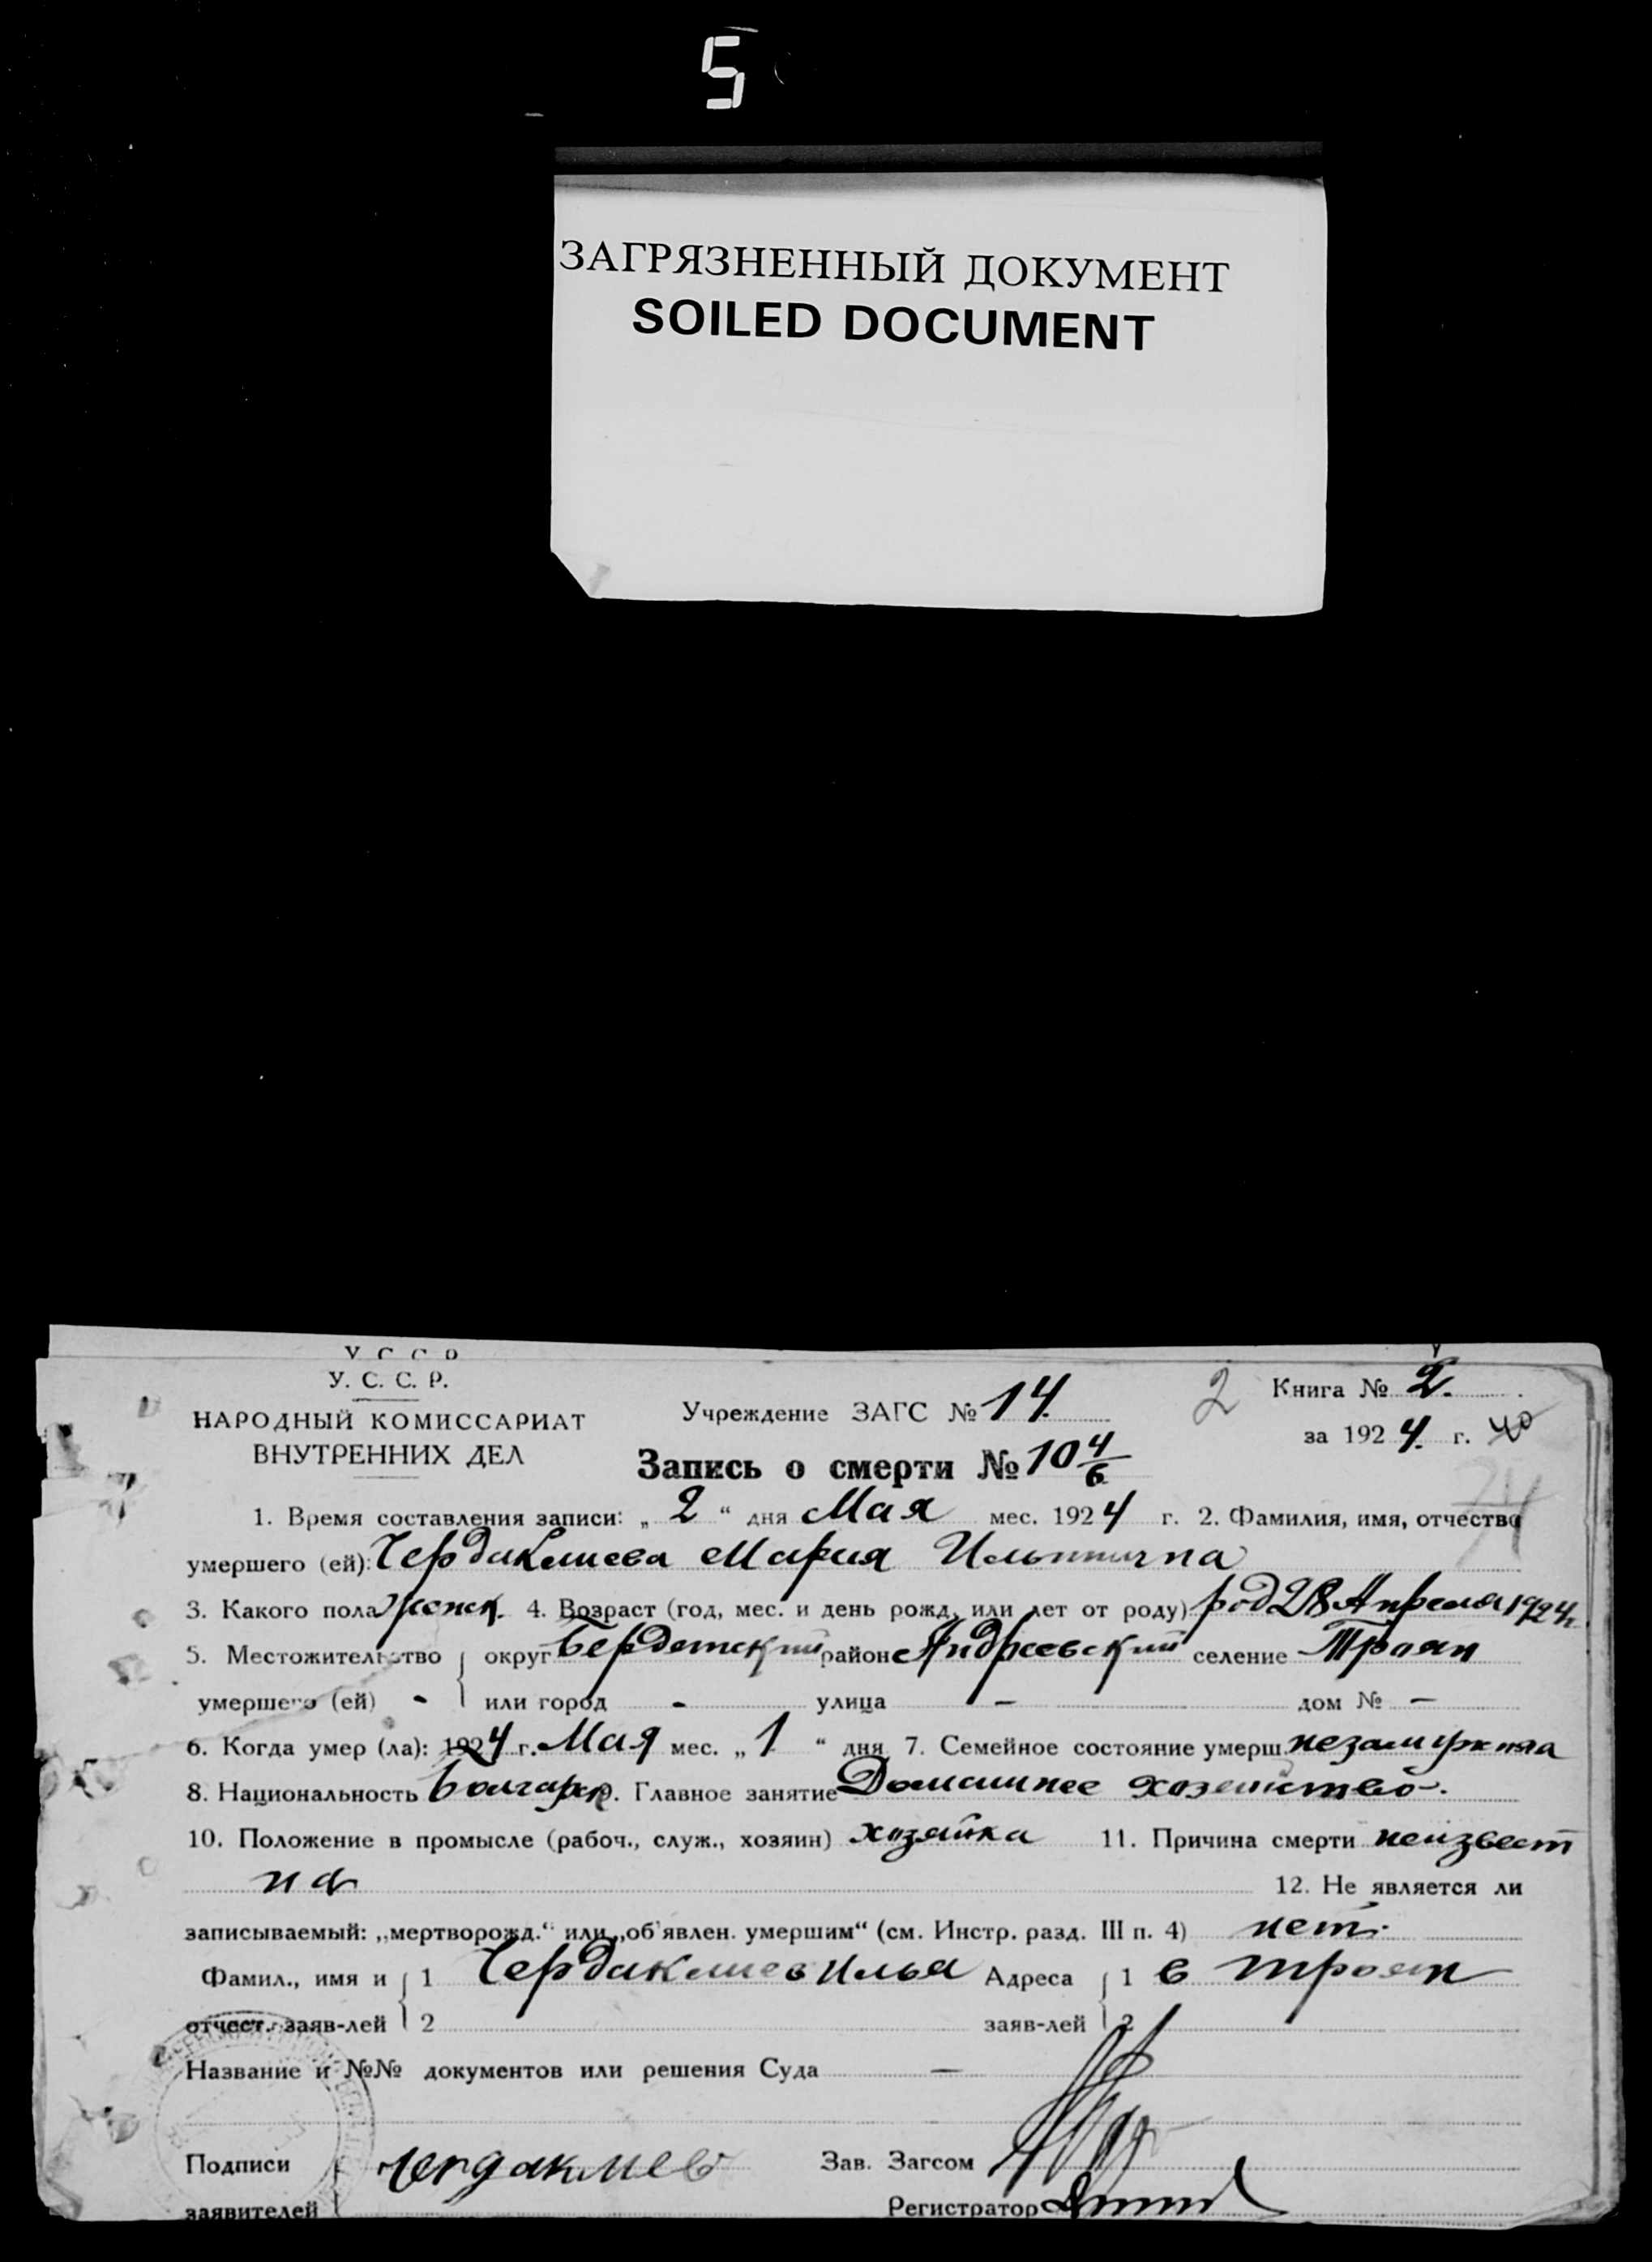 5
ЗАГРЯЗНЕННЫЙ ДОКУМЕНТ
SOILED DOCUMENT
У. С. С. Р.
НАРОДНЫЙ КОМИССАРИАТ
ВНУТРЕННИХ ДЕЛ
Учреждение ЗАГС № 14
2 Книга № 2.
за 1924 г. 40
Запись о смерти № 10 4/6
74
1. Время составления записи: „ 2 “ дня Мая мес. 1924 г. 2. Фамилия, имя, отчество
умершего (ей): Чердаклиева Мария Ильинична
3. Какого пола женск. 4. Возраст (год, мес. и день рожд. или лет от роду) род 28 Апреля 1924 г.
5. Местожительство округ Бердянский район Андреевский селение Траян
умершего (ей) - или город - улица — дом № —
6. Когда умер (ла): 1924 г. Мая мес. „ 1 “ дня 7. Семейное состояние умерш. незамужняя
8. Национальность Болгарк. 9. Главное занятие Домашнее хозяйство.
10. Положение в промысле (рабоч., служ., хозяин) хозяйка 11. Причина смерти неизвест
на 12. Не является ли
записываемый: „мертворожд.“ или „об'явлен. умершим“ (см. Инстр. разд. III п. 4) нет.
Фамил., имя и 1 Чердаклиев Илья Адреса 1 с Троян
отчест. заяв-лей 2 заяв-лей 2
Название и №№ документов или решения Суда —
Подписи Чердаклиев Зав. Загсом
заявителей Регистратор